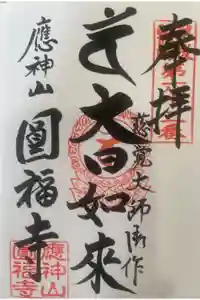 奉拝
慈覚大師御作
大日如来
應神山
圓福寺
應神山
圓福寺